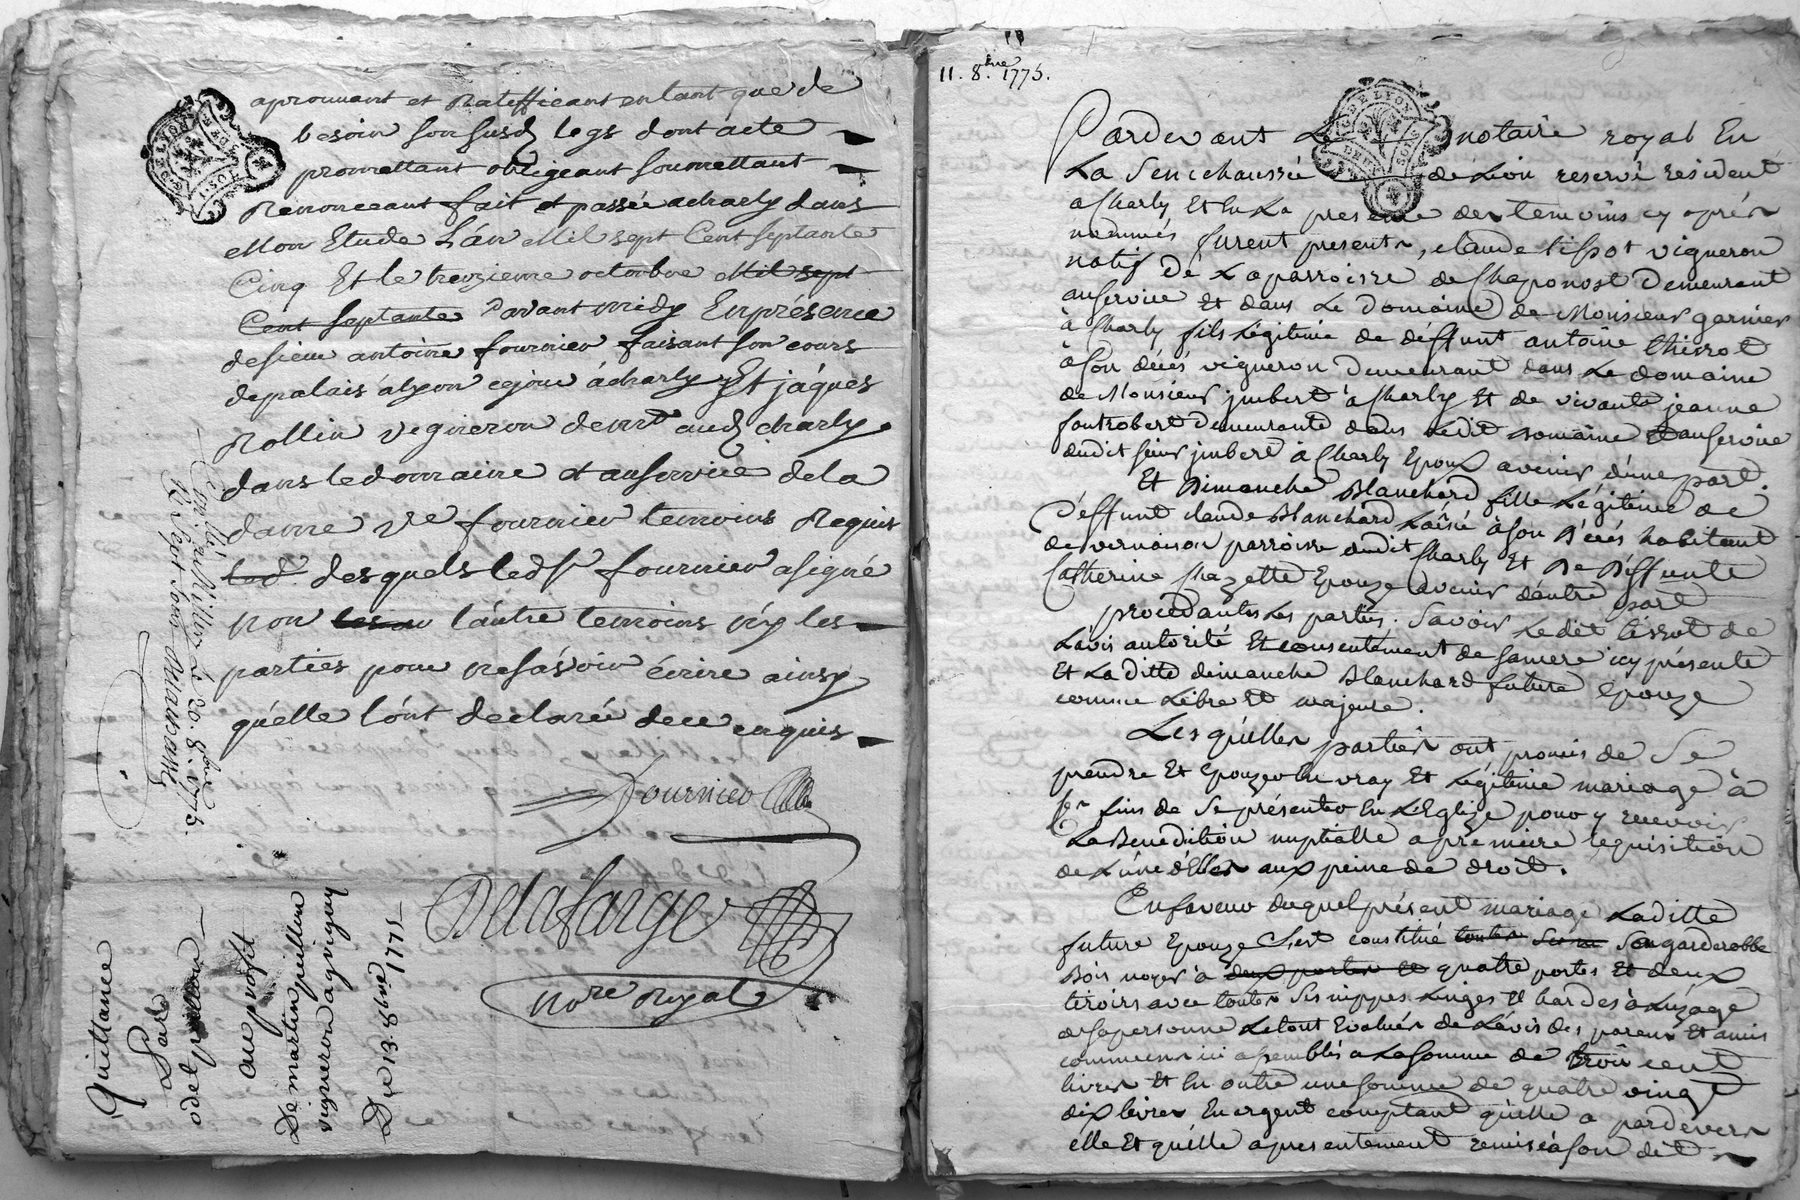 aprouvant et Ratifficant entant que de
besoin son susd legs dont acte
promettant obligeant soumettant
Renonceant fait et passée acharly dans
Mon Etude L'án Mil sept Cent septante
Cinq Et le treizieme octobre Mil sept
Cent septante avant midy En présence
de sieur antoine fournier faisant son cours
de palais a lyon ce jour á charly Et jáques
Rollin vigneron demrt aud charly
dans le domaine et au service de la
dame ve fournier temoins Requis
desquels led sr fournier a signé
non l'autre temoins ny les
parties pour ne sávoir écrire ainsy
qu'elle l'ont declarée de ce enquis
fournier
Delafarge
Nore Royal
Quittance
au profit
De martin
vigneron a vigny
Du 13. 8bre 1775
11. 8bre 1775.
Pardevant Le notaire royal En
La Senechaussée de Lion reservé resident
a Charly Et En La presence des temoins cy aprés
nommés furent presents, claude tissot vigneron
natif de La parroisse de Chaponost Demeurant
au service Et dans Le Domaine de Monsieur garnier
à Charly fils Légitime de deffunt antoine thissot
à son décés vigneron Demeurant dans Le domaine
de Monsieur jmbert à Charly Et de vivante jeanne
fontrobert Demeurante dans Ledit Domaine Et au service
dudit sieur jmbert à Charly Epoux avenir d'une part.
Et Dimanche Blanchard fille Légitime de
Déffunt claude Blanchard à son Décés habitant
de vernaison parroisse dudit Charly Et De Déffunte
Catherine Chazette Epouze avenir d'autre part
procedantes Les parties. Savoir Le dit tissot de
L'avis autorité Et consentement de sa mere icy présente
Et La ditte dimanche Blanchard future Epouze
comme Libre Et majeure.
Lesquelles parties ont promis de Se
prendre Et Epouzer En vray Et Légitime mariage à
fins de Se présenter En L'Eglize pour y recevoir
La Benediction nuptialle a premiere requisition
de L'une d'Elles aux peine de droit.
En faveur duquel présent mariage Laditte
future Epouze S'est constitué toutes Son garderobbe
Bois noyer à deux portes Et quatre portes Et deux
tiroirs avec toutes Ses nippes Linges Et hardes à L'uzage
de sa personne Le tout Evalués de L'avis des parens Et amis
communs ici assemblés a La Somme de trois cent
livres Et En outre une Somme de quatre vingt
dix livres En argent comptant qu'elle a pardevers
elle Et qu'elle a presentement remise à Son dit